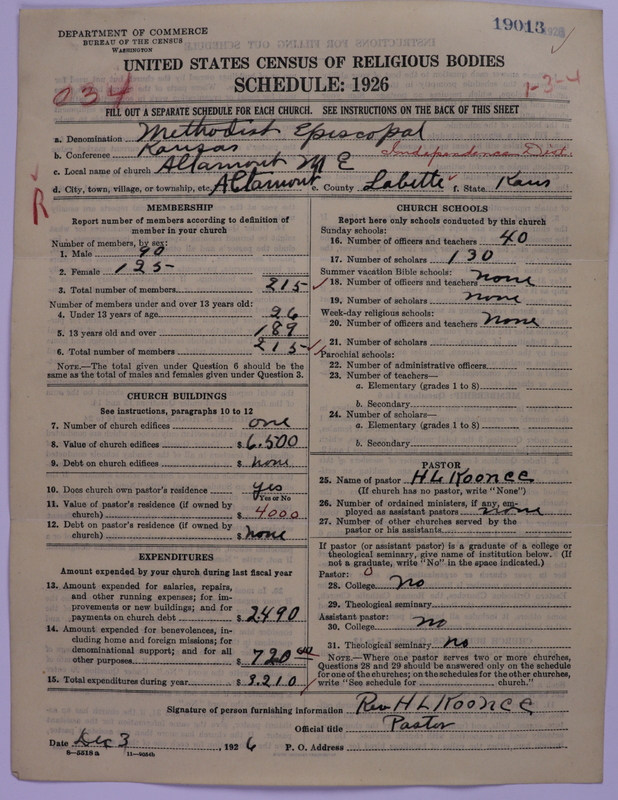 DEPARTMENT OF COMMERCE
BUREAU OF THE CENSUS
WASHINGTON
19013
UNITED STATES CENSUS OF RELIGIOUS BODIES
SCHEDULE: 1926
034
1-3-4
FILL OUT A SEPARATE SCHEDULE FOR EACH CHURCH. SEE INSTRUCTIONS ON THE BACK OF THIS SHEET
a. Denomination Methodist Episcopal
b. Conference Kansas Independence Dist.
c. Local name of church Altamont M E
d. City, town, village, or township, etc. Altamont e. County Labette f. State Kans
R
MEMBERSHIP
Report number of members according to definition of member in your church
Number of members, by sex:
1. Male 90
2. Female 125
3. Total number of members 215
Number of members under and over 13 years old:
4. Under 13 years of age 26
5. 13 years old and over 189
6. Total number of members 215
NOTE.—The total given under Question 6 should be
same as the total of males and females given under Question 3.
CHURCH BUILDINGS
See instructions, paragraphs 10 to 12
7. Number of church edifices one
8. Value of church edifices $ 6.500
9. Debt on church edifices $ none
10. Does church own pastor's residence yes
Yes or No
11. Value of pastor's residence (if owned by
church) $ 4000
12. Debt on pastor's residence (if owned by
church) $ none
EXPENDITURES
Amount expended by your church during last fiscal year
13. Amount expended for salaries, repairs,
and other running expenses; for im-
provements or new buildings; and for
payments on church debt $ 2490
14. Amount expended for benevolences, in-
cluding home and foreign missions; for
denominational support; and for all
other purposes $ 720
15. Total expenditures during year $ 3210
CHURCH SCHOOLS
Report here only schools conducted by this church
Sunday schools:
16. Number of officers and teachers 40
17. Number of scholars 130
Summer vacation Bible schools:
18. Number of officers and teachers none
19. Number of scholars none
Week-day religious schools:
20. Number of officers and teachers none
21. Number of scholars
Parochial schools:
22. Number of administrative officers
23. Number of teachers—
a. Elementary (grades 1 to 8)
b. Secondary
24. Number of scholars—
a. Elementary (grades 1 to 8)
b. Secondary
PASTOR
25. Name of pastor H L Koonce
(If church has no pastor, write "None")
26. Number of ordained ministers, if any, em-
ployed as assistant pastors none
27. Number of other churches served by the
pastor or his assistants
If pastor (or assistant pastor) is a graduate of a college or
theological seminary, give name of institution below. (If
not a graduate, write "No" in the space indicated.)
Pastor:
28. College No
29. Theological seminary
Assistant pastor:
30. College no
31. Theological seminary no
NOTE.—Where one pastor serves two or more churches,
Questions 28 and 29 should be answered only on the schedule
for one of the churches; on the schedules for the other churches,
write "See schedule for church."
Signature of person furnishing information Rev H L Koonce
Official title Pastor
Date Dec 3, 1926 P. O. Address
8—5518 a